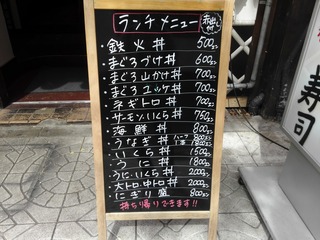 ランチメニュー 赤出し付
・鉄火丼 500円
・まぐろづけ丼 600円
・まぐろ山かけ丼 700円
・まぐろユッケ丼 700円
・ネギトロ丼 700円
・サーモン・いくら丼 750円
・海鮮丼 800円
・うなぎ丼 ハーフ 800円 1本 1800円
・いくら丼 1500円
・うに丼 1800円
・うに・いくら丼 2000円
・大トロ・中トロ丼 2000円
・にぎり盛 800円
持ち帰りできます!!
寿司